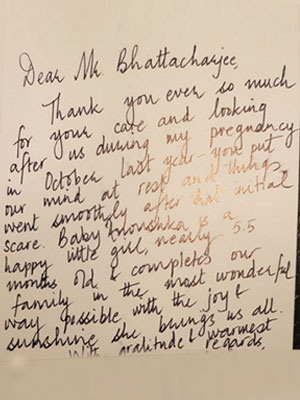 Dear Mr. Bhattacharjee,
Thank you ever so much
for your care and looking
after us during my pregnancy
in October last year - you put
our mind at rest and things
went smoothly after that initial
scare. Baby Anoushka is a
happy little girl, nearly 5.5
months old & completes our
family in the most wonderful
way possible with the joy &
sunshine she brings us all.
With gratitude & warmest
regards,